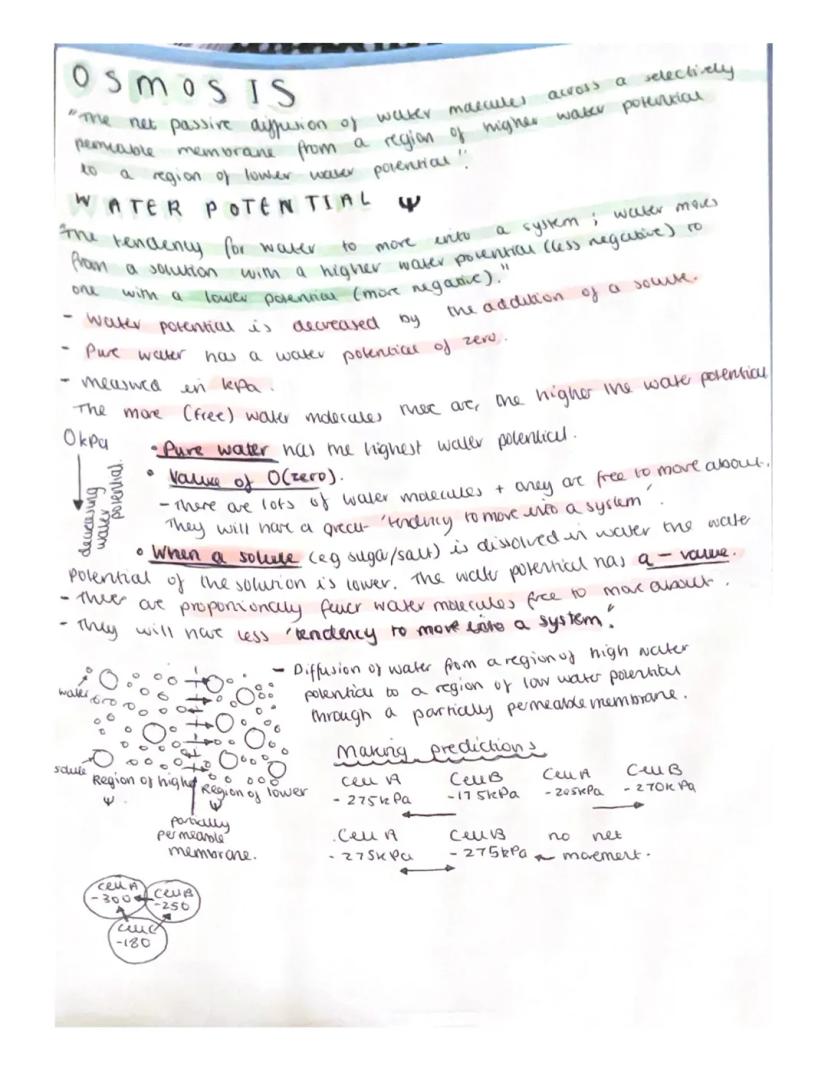 OSMOSIS
"The net passive diffusion of water molecules across a selectively
permeable membrane from a region of higher water potential
to a region of lower water potential".
WATER POTENTIAL Ψ
"The tendency for water to move into a system; water moves
from a solution with a higher water potential (less negative) to
one with a lower potential (more negative)."
- Water potential is decreased by the addition of a solute.
- Pure water has a water potential of zero.
- measured in kPa.
The more (free) water molecules there are, the higher the water potential
0kPa
decreasing water potential.
• Pure water has the highest water potential.
• Value of 0(zero).
- There are lots of water molecules + they are free to move about.
They will have a great 'tendency to move into a system'.
• When a solute (eg sugar/salt) is dissolved in water the water
potential of the solution is lower. The water potential has a - value.
- There are proportionally fewer water molecules free to move about.
- They will have less 'tendency to move into a system."
- Diffusion of water from a region of high water
potential to a region of low water potential
through a partially permeable membrane.
water
solute
Region of higher Ψ
Region of lower Ψ
partially
permeable
membrane.
Making predictions
Cell A Cell B Cell A Cell B
-275kPa -175kPa -205kPa -270kPa
Cell A Cell B no net
-275kPa -275kPa movement.
Cell A
-300
Cell B
-250
Cell C
-180